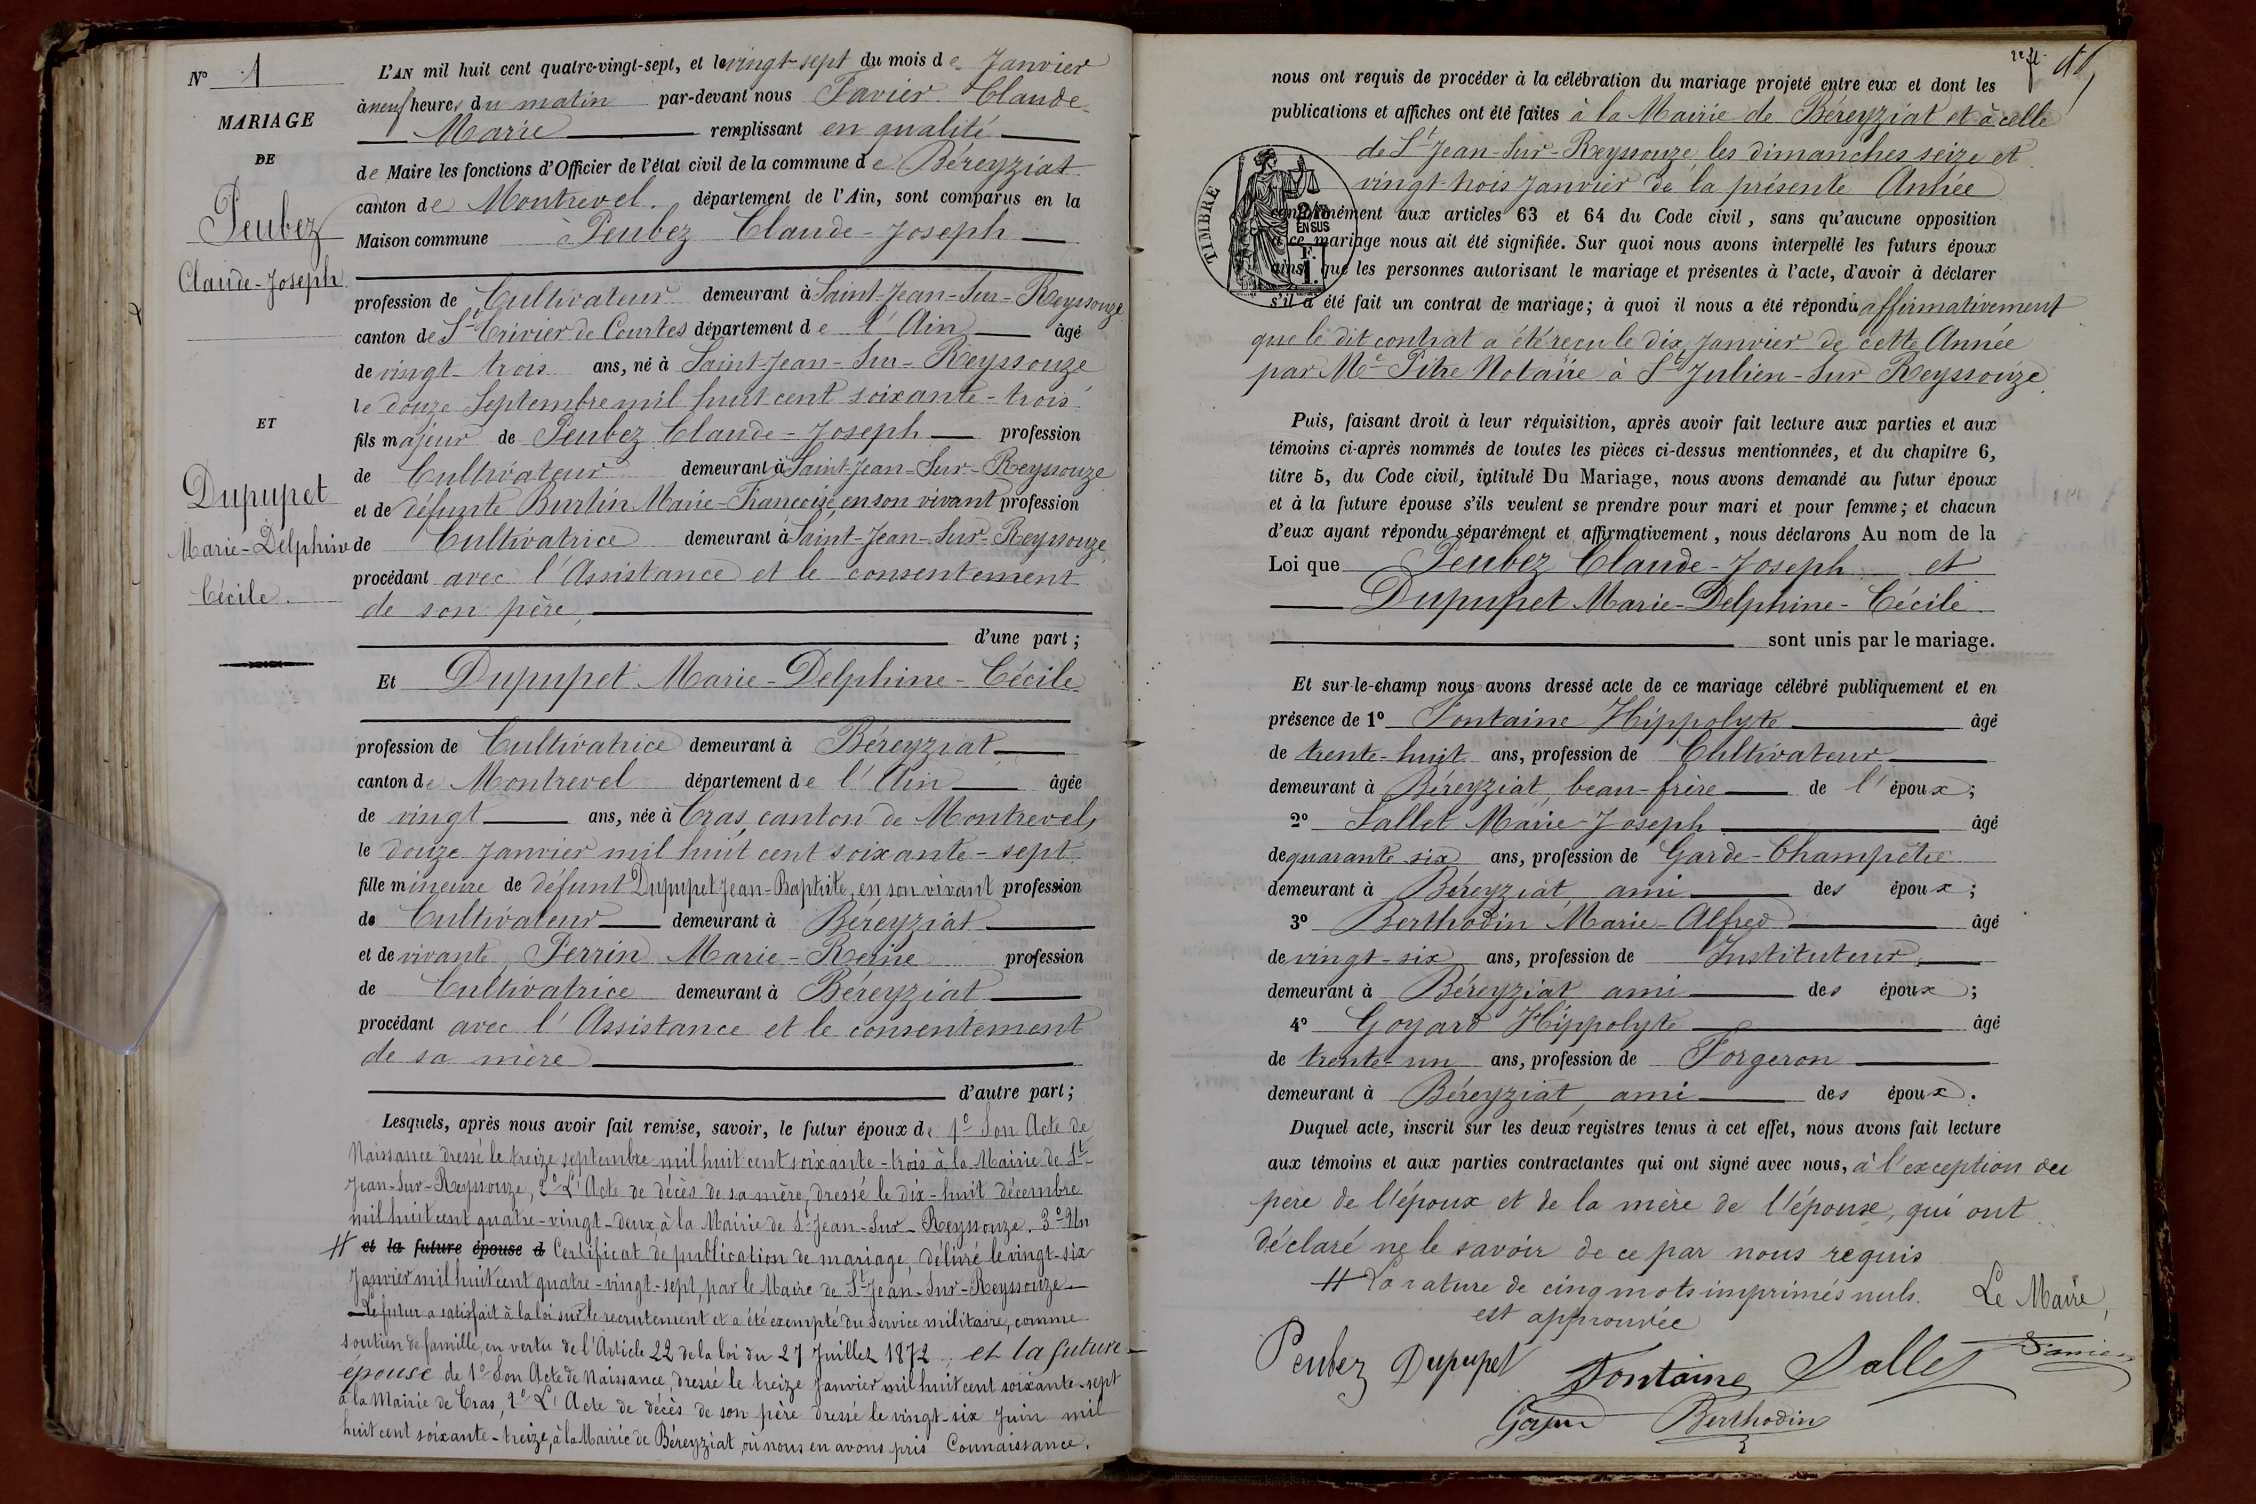 N° 1
MARIAGE
DE
Peubez
Claude-Joseph
ET
Dupupet
Marie-Delphine
Cécile.
L'AN mil huit cent quatre-vingt-sept, et le vingt-sept du mois de Janvier
à neuf heures du matin par-devant nous Favier Claude
Marie remplissant en qualité
de Maire les fonctions d'Officier de l'état civil de la commune de Béreyziat
canton de Montrevel. département de l'Ain, sont comparus en la
Maison commune à Peubez Claude-Joseph
profession de Cultivateur demeurant à Saint-Jean-Sur-Reyssouze
canton de St Trivier de Courtes département de l'Ain âgé
de vingt-trois ans, né à Saint-Jean-Sur-Reyssouze
le douze Septembre mil huit cent soixante-trois
fils majeur de Peubez Claude-Joseph profession
de Cultivateur demeurant à Saint-Jean-Sur-Reyssouze
et de défunte Burtin Marie-Francoise, en son vivant profession
de Cultivatrice demeurant à Saint-Jean-Sur-Reyssouze,
procédant avec l'Assistance et le consentement
de son père,
d'une part ;
Et Dupupet Marie-Delphine-Cécile
profession de Cultivatrice demeurant à Béreyziat
canton de Montrevel département de l'Ain âgée
de vingt ans, née à Cras, canton de Montrevel,
le douze Janvier mil huit cent soixante-sept
fille mineure de défunt Dupupet Jean-Baptiste, en son vivant profession
de Cultivateur demeurant à Béreyziat
et de vivante Perrin Marie-Reine profession
de Cultivatrice demeurant à Béreyziat
procédant avec l'Assistance et le consentement
de sa mère
d'autre part ;
Lesquels, après nous avoir fait remise, savoir, le futur époux de 1° Son Acte de
Naissance dressé le treize septembre mil huit cent soixante-trois à la Mairie de St-
Jean-Sur-Reyssouze, 2° L'Acte de décès de sa mère, dressé le dix-huit décembre
mil huit cent quatre-vingt-deux à la Mairie de St Jean-Sur-Reyssouze. 3° Un
# et la future épouse d Certificat de publication de mariage, délivré le vingt-six
Janvier mil huit cent quatre-vingt-sept, par le Maire de St Jean-Sur-Reyssouze
Le futur a satisfait à la loi sur le recrutement et a été exempté du Service militaire, comme
soutien de famille, en vertu de l'Article 22 de la loi du 27 Juillet 1872. et la future
épouse de 1° Son Acte de Naissance, dressé le treize Janvier mil huit cent soixante-sept
à la Mairie de Cras, 2° L'Acte de décès de son père dressé le vingt-six Juin mil
huit cent soixante-treize, à la Mairie de Béreyziat, où nous en avons pris Connaissance.
nous ont requis de procéder à la célébration du mariage projeté entre eux et dont les
publications et affiches ont été faites à la Mairie de Béreyziat et à celle
de St Jean-Sur-Reyssouze les dimanches seize et
vingt-trois Janvier de la présente Année
TIMBRE
EN SUS
conformément aux articles 63 et 64 du Code civil, sans qu'aucune opposition
à ce mariage nous ait été signifiée. Sur quoi nous avons interpellé les futurs époux
ainsi que les personnes autorisant le mariage et présentes à l'acte, d'avoir à déclarer
s'il a été fait un contrat de mariage; à quoi il nous a été répondu affirmativement
que le dit contrat a été recu le dix Janvier de cette Année
par Me Pitre Notaire à St Julien-Sur Reyssouze
Puis, faisant droit à leur réquisition, après avoir fait lecture aux parties et aux
témoins ci-après nommés de toutes les pièces ci-dessus mentionnées, et du chapitre 6,
titre 5, du Code civil, intitulé Du Mariage, nous avons demandé au futur époux
et à la future épouse s'ils veulent se prendre pour mari et pour femme; et chacun
d'eux ayant répondu séparément et affirmativement, nous déclarons Au nom de la
Loi que Peubez Claude-Joseph et
Dupupet Marie-Delphine-Cécile
sont unis par le mariage.
Et sur-le-champ nous avons dressé acte de ce mariage célébré publiquement et en
présence de 1° Fontaine Hippolyte âgé
de trente-huit ans, profession de Cultivateur
demeurant à Béreyziat, beau-frère de l'époux ;
2° Sallet Marie-Joseph âgé
de quarante six ans, profession de Garde-Champêtre
demeurant à Béreyziat, ami des époux ;
3° Berthodin Marie-Alfred âgé
de vingt-six ans, profession de Instituteur,
demeurant à Béreyziat ami des époux ;
4° Goyard Hippolyte âgé
de trente-un ans, profession de Forgeron
demeurant à Béreyziat, ami des époux.
Duquel acte, inscrit sur les deux registres tenus à cet effet, nous avons fait lecture
aux témoins et aux parties contractantes qui ont signé avec nous, à l'exception du
père de l'époux et de la mère de l'épouse, qui ont
déclaré ne le savoir de ce par nous requis
# La rature de cinq mots imprimés nuls.
est approuvée
Le Maire,
Peubez Dupupet Fontaine Sallet Favier
Goyard Berthodin